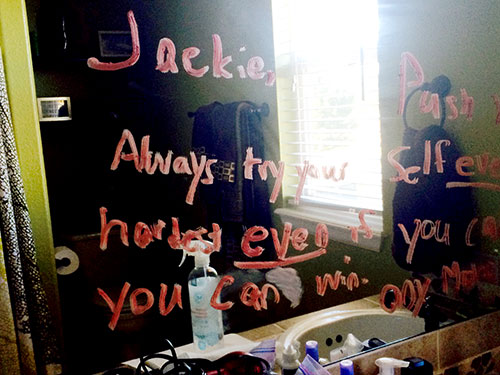 Jackie,
Always try your
hardest even if
you can win.
Push
Self
you
any